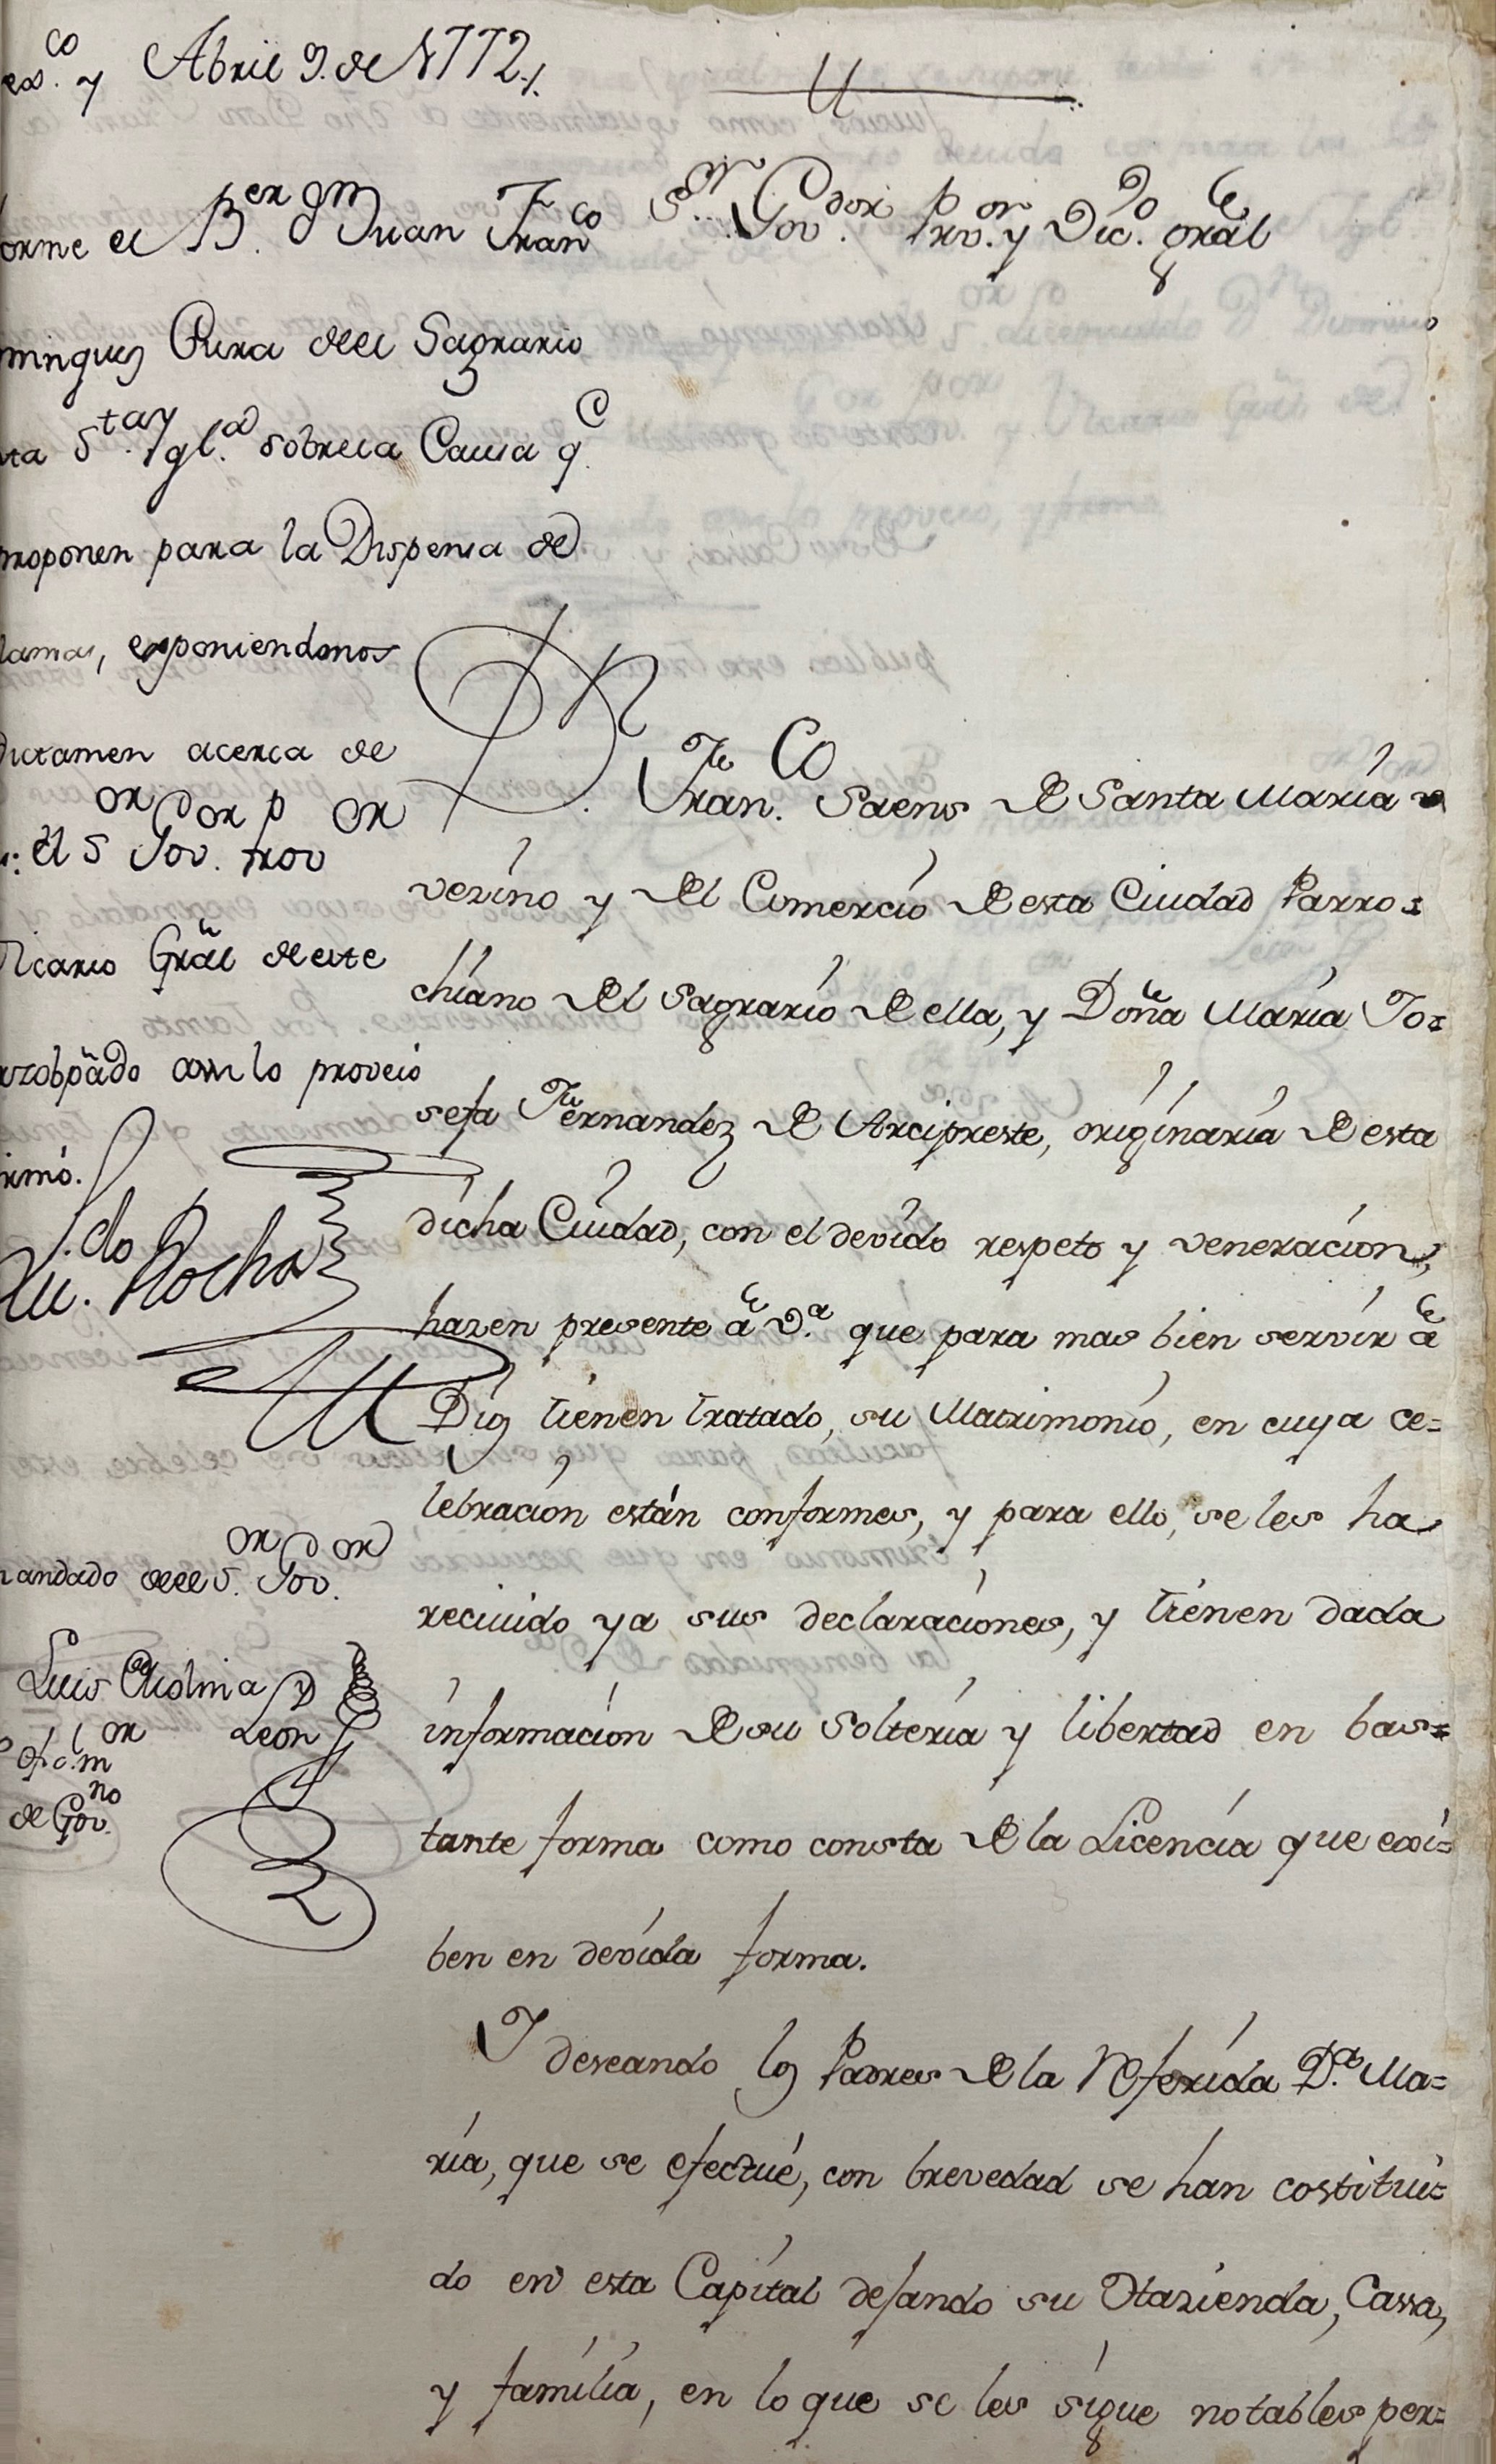 co
exs. y Abril 9. de 1772.
orme el B.er Dn Juan Franco
minguez Cura deel Sagrario
sta Sta. Ygla. sobre la Causa qe.
proponen para la Dispensa de
lamas, exponiendonos
dictamen acerca de
: el Sor Govdor Provor
Vicario Gräl de este
arzobpãdo assi lo proveió
irmó.
Rocha
mandado deel Sor. Govdor
Luis Molina
Leon
ofi.l mor
de Govno.
Sor. Govdor Provor. y Vico. gräl
Dn. Franco. Saens de Santa María
vezíno y del Comercio de esta Ciudad Parro=
chiano del Sagrario de ella, y Doña María Jo=
sefa Fernandez de Arcipreste, originaria de esta
dicha Ciudad, con el devido respeto y veneracion,
hazen presente â V.a que para mas bien servir â
Dios tienen tratado, su Matrimonio, en cuya ce=
lebracion están conformes, y para ello, se les ha
reciuido ya sus declaraciones, y tienen dada
informacion de su Solteria y libertad en bas=
tante forma como consta de la Licencia que exi=
ben en devida forma.
Y deseando los Padres de la Referida D.a Ma=
ría, que se efectué, con brevedad se han costitui=
do en esta Capital dejando su Hazienda, Cassa,
y familia, en lo que se les sigue notables per=